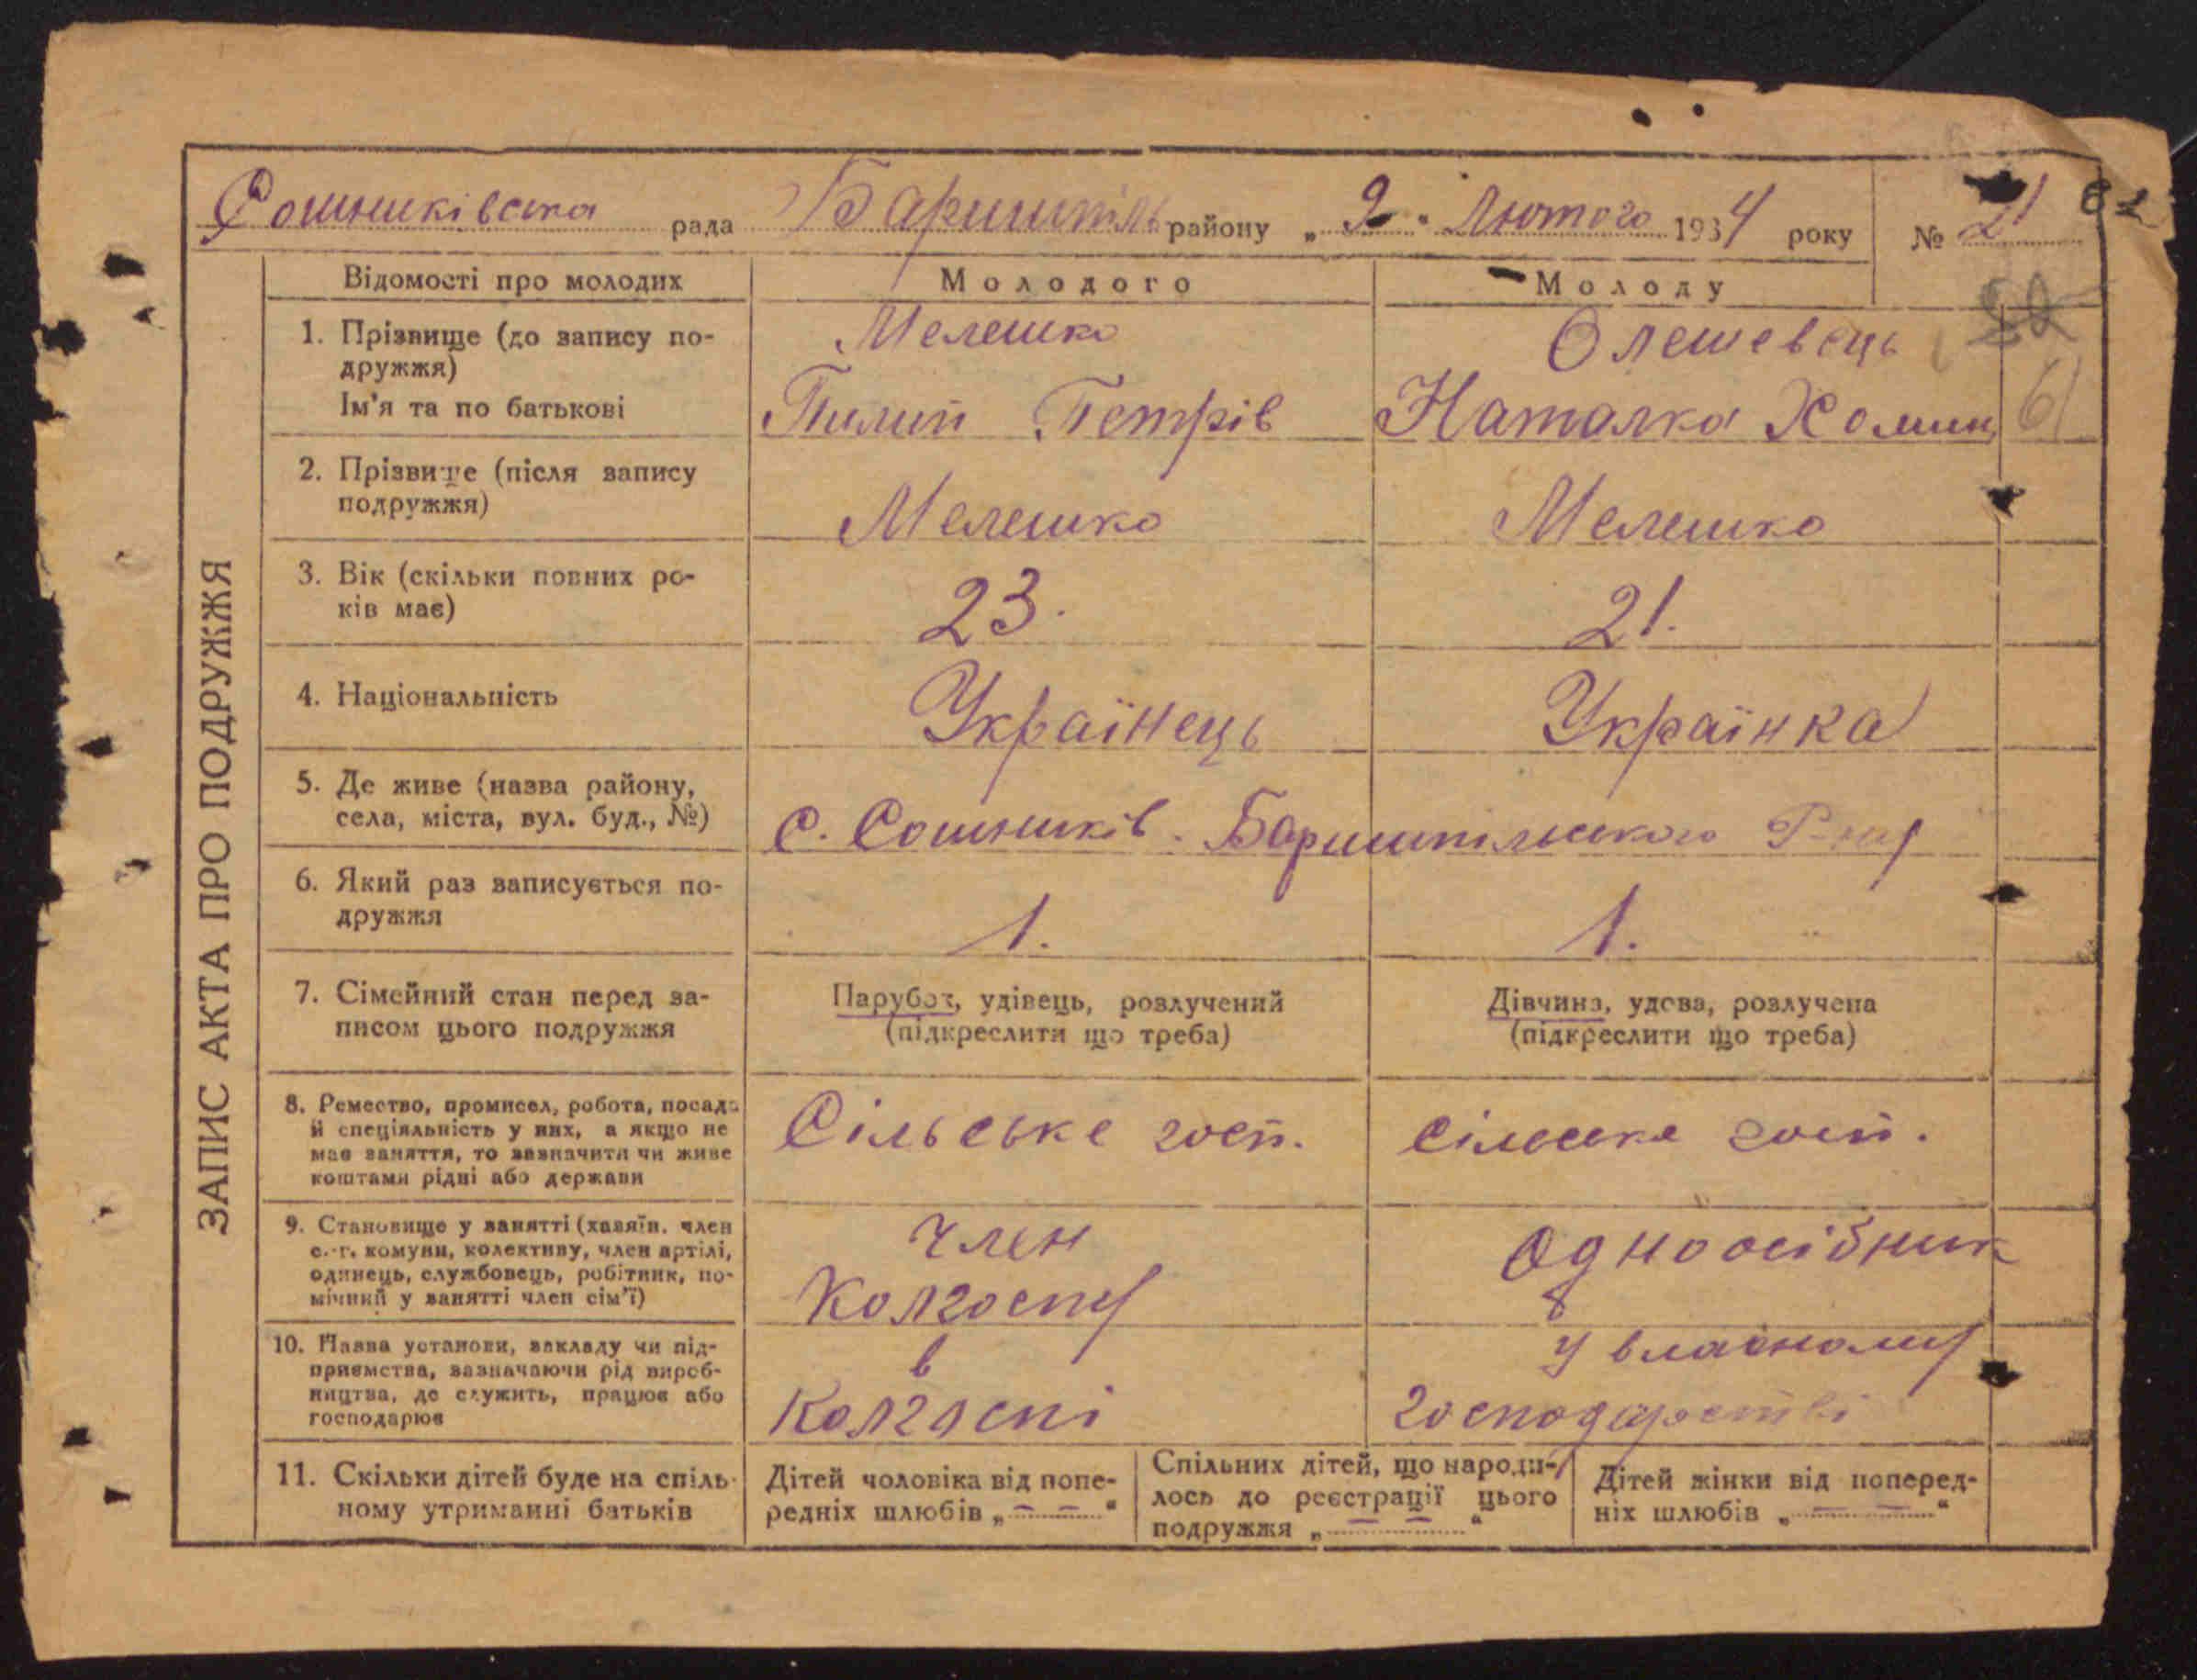 Сошниківська рада Баришпіль району „ 9 " Лютого 1934 року № 21
62
Відомості про молодих
Молодого
Молоду
ЗАПИС АКТА ПРО ПОДРУЖЖЯ
1. Прізвище (до запису по-
дружжя)
Ім'я та по батькові
Мелешко
Пилип Петрів
Олешевець
Наталка Хомин
61
2. Прізвище (після запису
подружжя)
Мелешко
Мелешко
3. Вік (скільки повних ро-
ків має)
23.
21.
4. Національність
Українець
Українка
5. Де живе (назва району,
села, міста, вул. буд., №)
С. Сошників. Баришпільського Р-ну
6. Який раз записується по-
дружжя
1.
1.
7. Сімейний стан перед за-
писом цього подружжя
Парубок, удівець, розлучений
(підкреслити що треба)
Дівчина, удова, розлучена
(підкреслити що треба)
8. Ремество, промисел, робота, посада
й спеціяльність у них, а якщо не
має заняття, то зазначити чи живе
коштами рідні або держави
Сільське госп.
сільське госп.
9. Становище у занятті (хазяїн. член
с.-г. комуни, колективу, член артілі,
одинець, службовець, робітник, по-
мічний у занятті член сім'ї)
член
Колгоспу
Одноосібник
10. Назва установи, закладу чи під-
приємства, зазначаючи рід вироб-
ництва, де служить, працює або
господарює
в
Колгоспі
у власному
господарстві
11. Скільки дітей буде на спіль-
ному утриманні батьків
Дітей чоловіка від попе-
редніх шлюбів „ — — "
Спільних дітей, що народи-
лось до реєстрації цього
подружжя „ — — "
Дітей жінки від поперед-
ніх шлюбів „ — — "